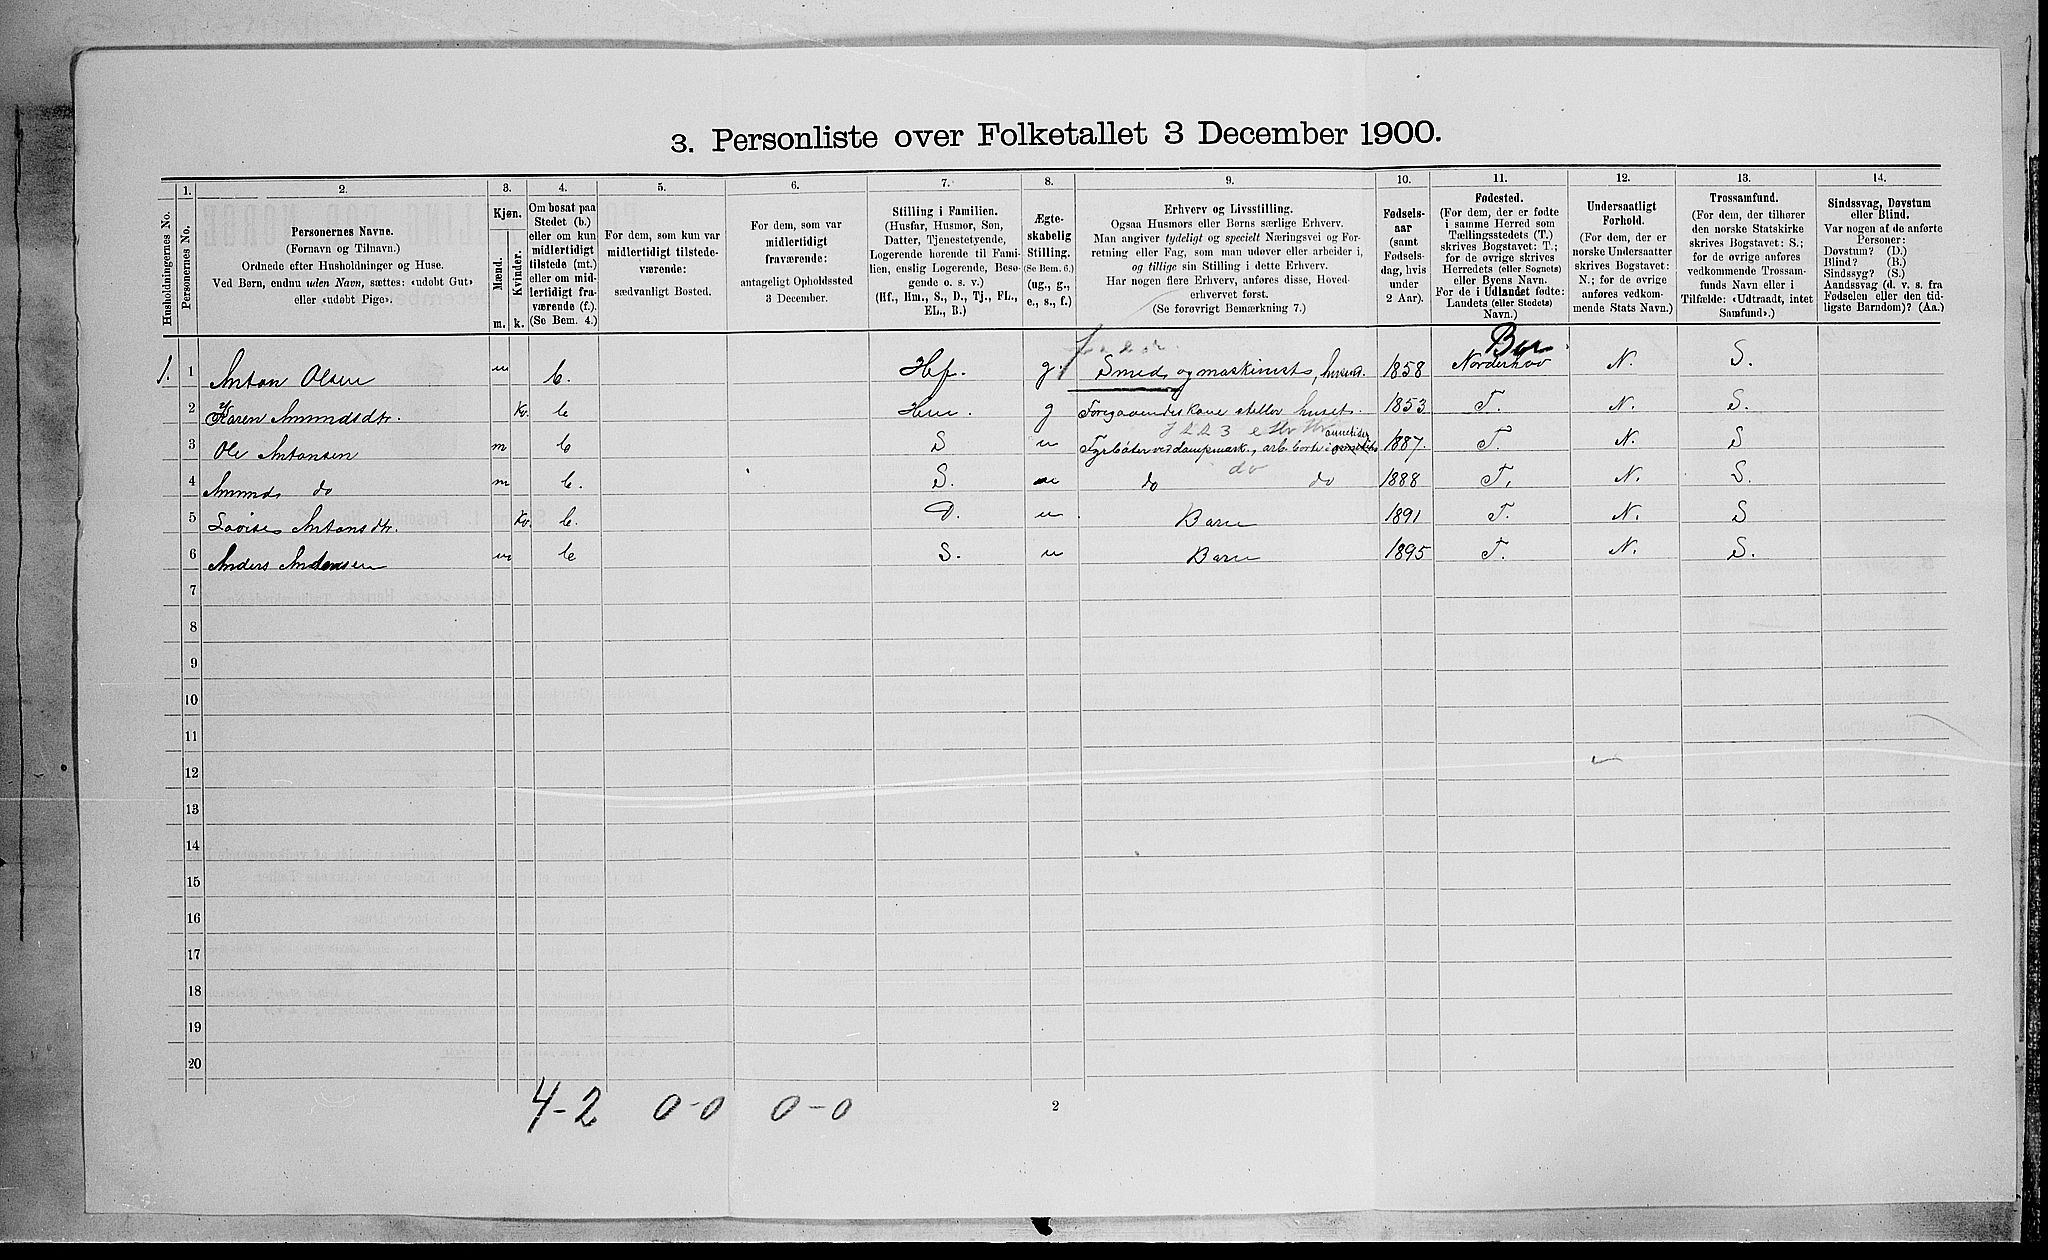 3. Personliste over Folketallet 3 December 1900.
Husholdningernes No.
1.
Personernes No.
2.
Personernes Navne.
(Fornavn og Tilnavn.)
Ordnede efter Husholdninger og Huse.
Ved Børn, endnu uden Navn, sættes: «udøbt Gut»
eller «udøbt Pige».
3.
Kjøn.
Mænd.
Kvinder.
m. k.
4.
Om bosat paa
Stedet (b.)
eller om kun
midlertidigt
tilstede (mt.)
eller om mid-
lertidigt fra-
værende (f.).
(Se Bem. 4.)
5.
For dem, som kun var
midlertidigt tilstede-
værende:
sædvanligt Bosted.
6.
For dem, som var
midlertidigt
fraværende:
antageligt Opholdssted
3 December.
7.
Stilling i Familien.
(Husfar, Husmor, Søn,
Datter, Tjenestetyende,
Logerende hørende til Fami-
lien, enslig Logerende, Besø-
gende o. s. v.)
(Hf., Hm., S., D., Tj., FL.,
EL., B.)
8.
Ægte-
skabelig
Stilling.
(Se Bem. 6.)
(ug., g.,
e., s., f.)
9.
Erhverv og Livsstilling.
Ogsaa Husmors eller Børns særlige Erhverv.
Man angiver tydeligt og specielt Næringsvei og For-
retning eller Fag, som man udøver eller arbeider i,
og tillige sin Stilling i dette Erhverv.
Har nogen flere Erhverv, anføres disse, Hoved-
erhvervet først.
(Se forøvrigt Bemærkning 7.)
10.
Fødsels-
aar
(samt
Fødsels-
dag, hvis
under
2 Aar).
11.
Fødested.
(For dem, der er fødte
i samme Herred som
Tællingsstedets (T.)
skrives Bogstavet: T.;
for de øvrige skrives
Herredets (eller Sognets)
eller Byens Navn.
For de i Udlandet fødte:
Landets (eller Stedets)
Navn.)
12.
Undersaatligt
Forhold.
(For dem, der er
norske Undersaatter
skrives Bogstavet:
N.; for de øvrige
anføres vedkom-
mende Stats Navn.)
13.
Trossamfund.
(For dem, der tilhører
den norske Statskirke
skrives Bogstavet: S.;
for de øvrige anføres
vedkommende Trossam-
funds Navn eller i
Tilfælde: «Udtraadt, intet
Samfund».)
14.
Sindssvag, Døvstum
eller Blind.
Var nogen af de anførte
Personer:
Døvstum? (D.)
Blind? (B.)
Sindssyg? (S.)
Aandssvag (d. v. s. fra
Fødselen eller den tid-
ligste Barndom)? (Aa.)
Bur.
1. 1 Anton Olsen m b. Hf. g. Smed og maskinist, 1858 Norderhov N. S.
2 Karen Amundsdtr. Kv. b Hm. g Foregaaendes kone steller huset. 1853 T. N. S.
3 Ole Antonsen m b S u Fyrbøter ved dampmask., arb. borte i 1887. T. N. S
4 Amund do m b. S. u do do 1888 T. N. S.
5 Lovise Antonsdtr. Kv. b. D. u Barn 1891 T. N. S
6 Anders Antonsen m b S. u Barn 1895 T. N. S.
7
8
9
10
11
12
13
14
15
16
17
18
19
20
4-2 0-0 0-0
2